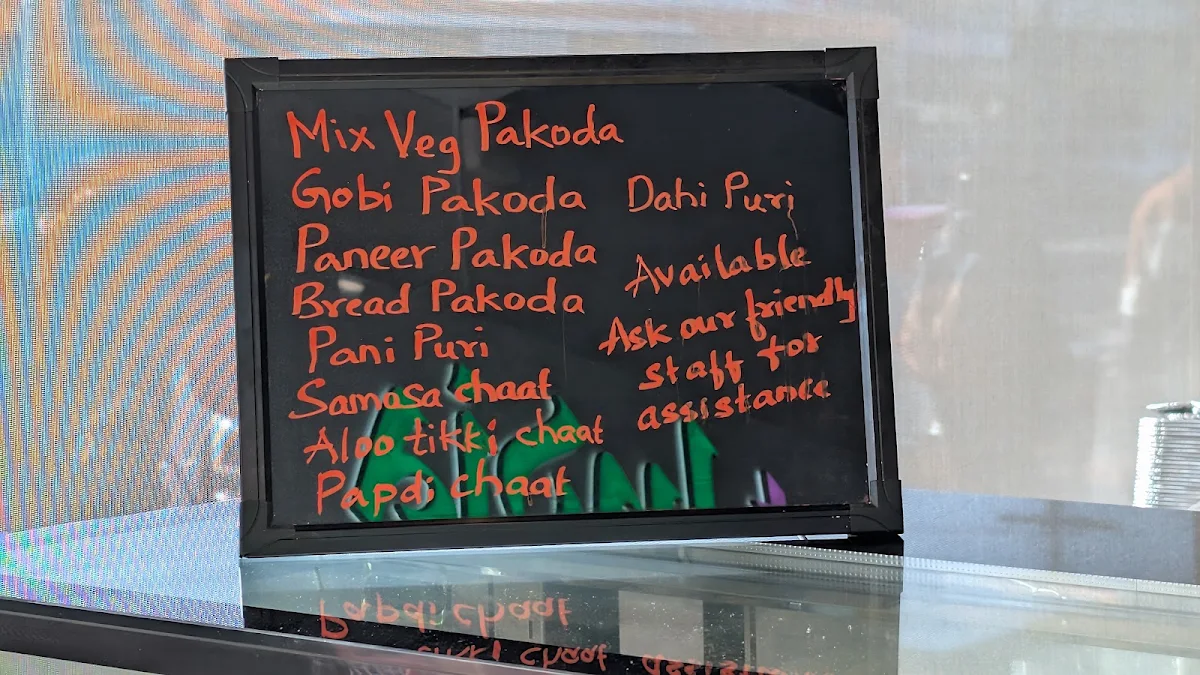 Mix Veg Pakoda
Gobi Pakoda
Paneer Pakoda
Bread Pakoda
Pani Puri
Samosa chaat
Aloo tikki chaat
Papdi chaat
Dahi Puri
Available
Ask our friendly
staff for
assistance